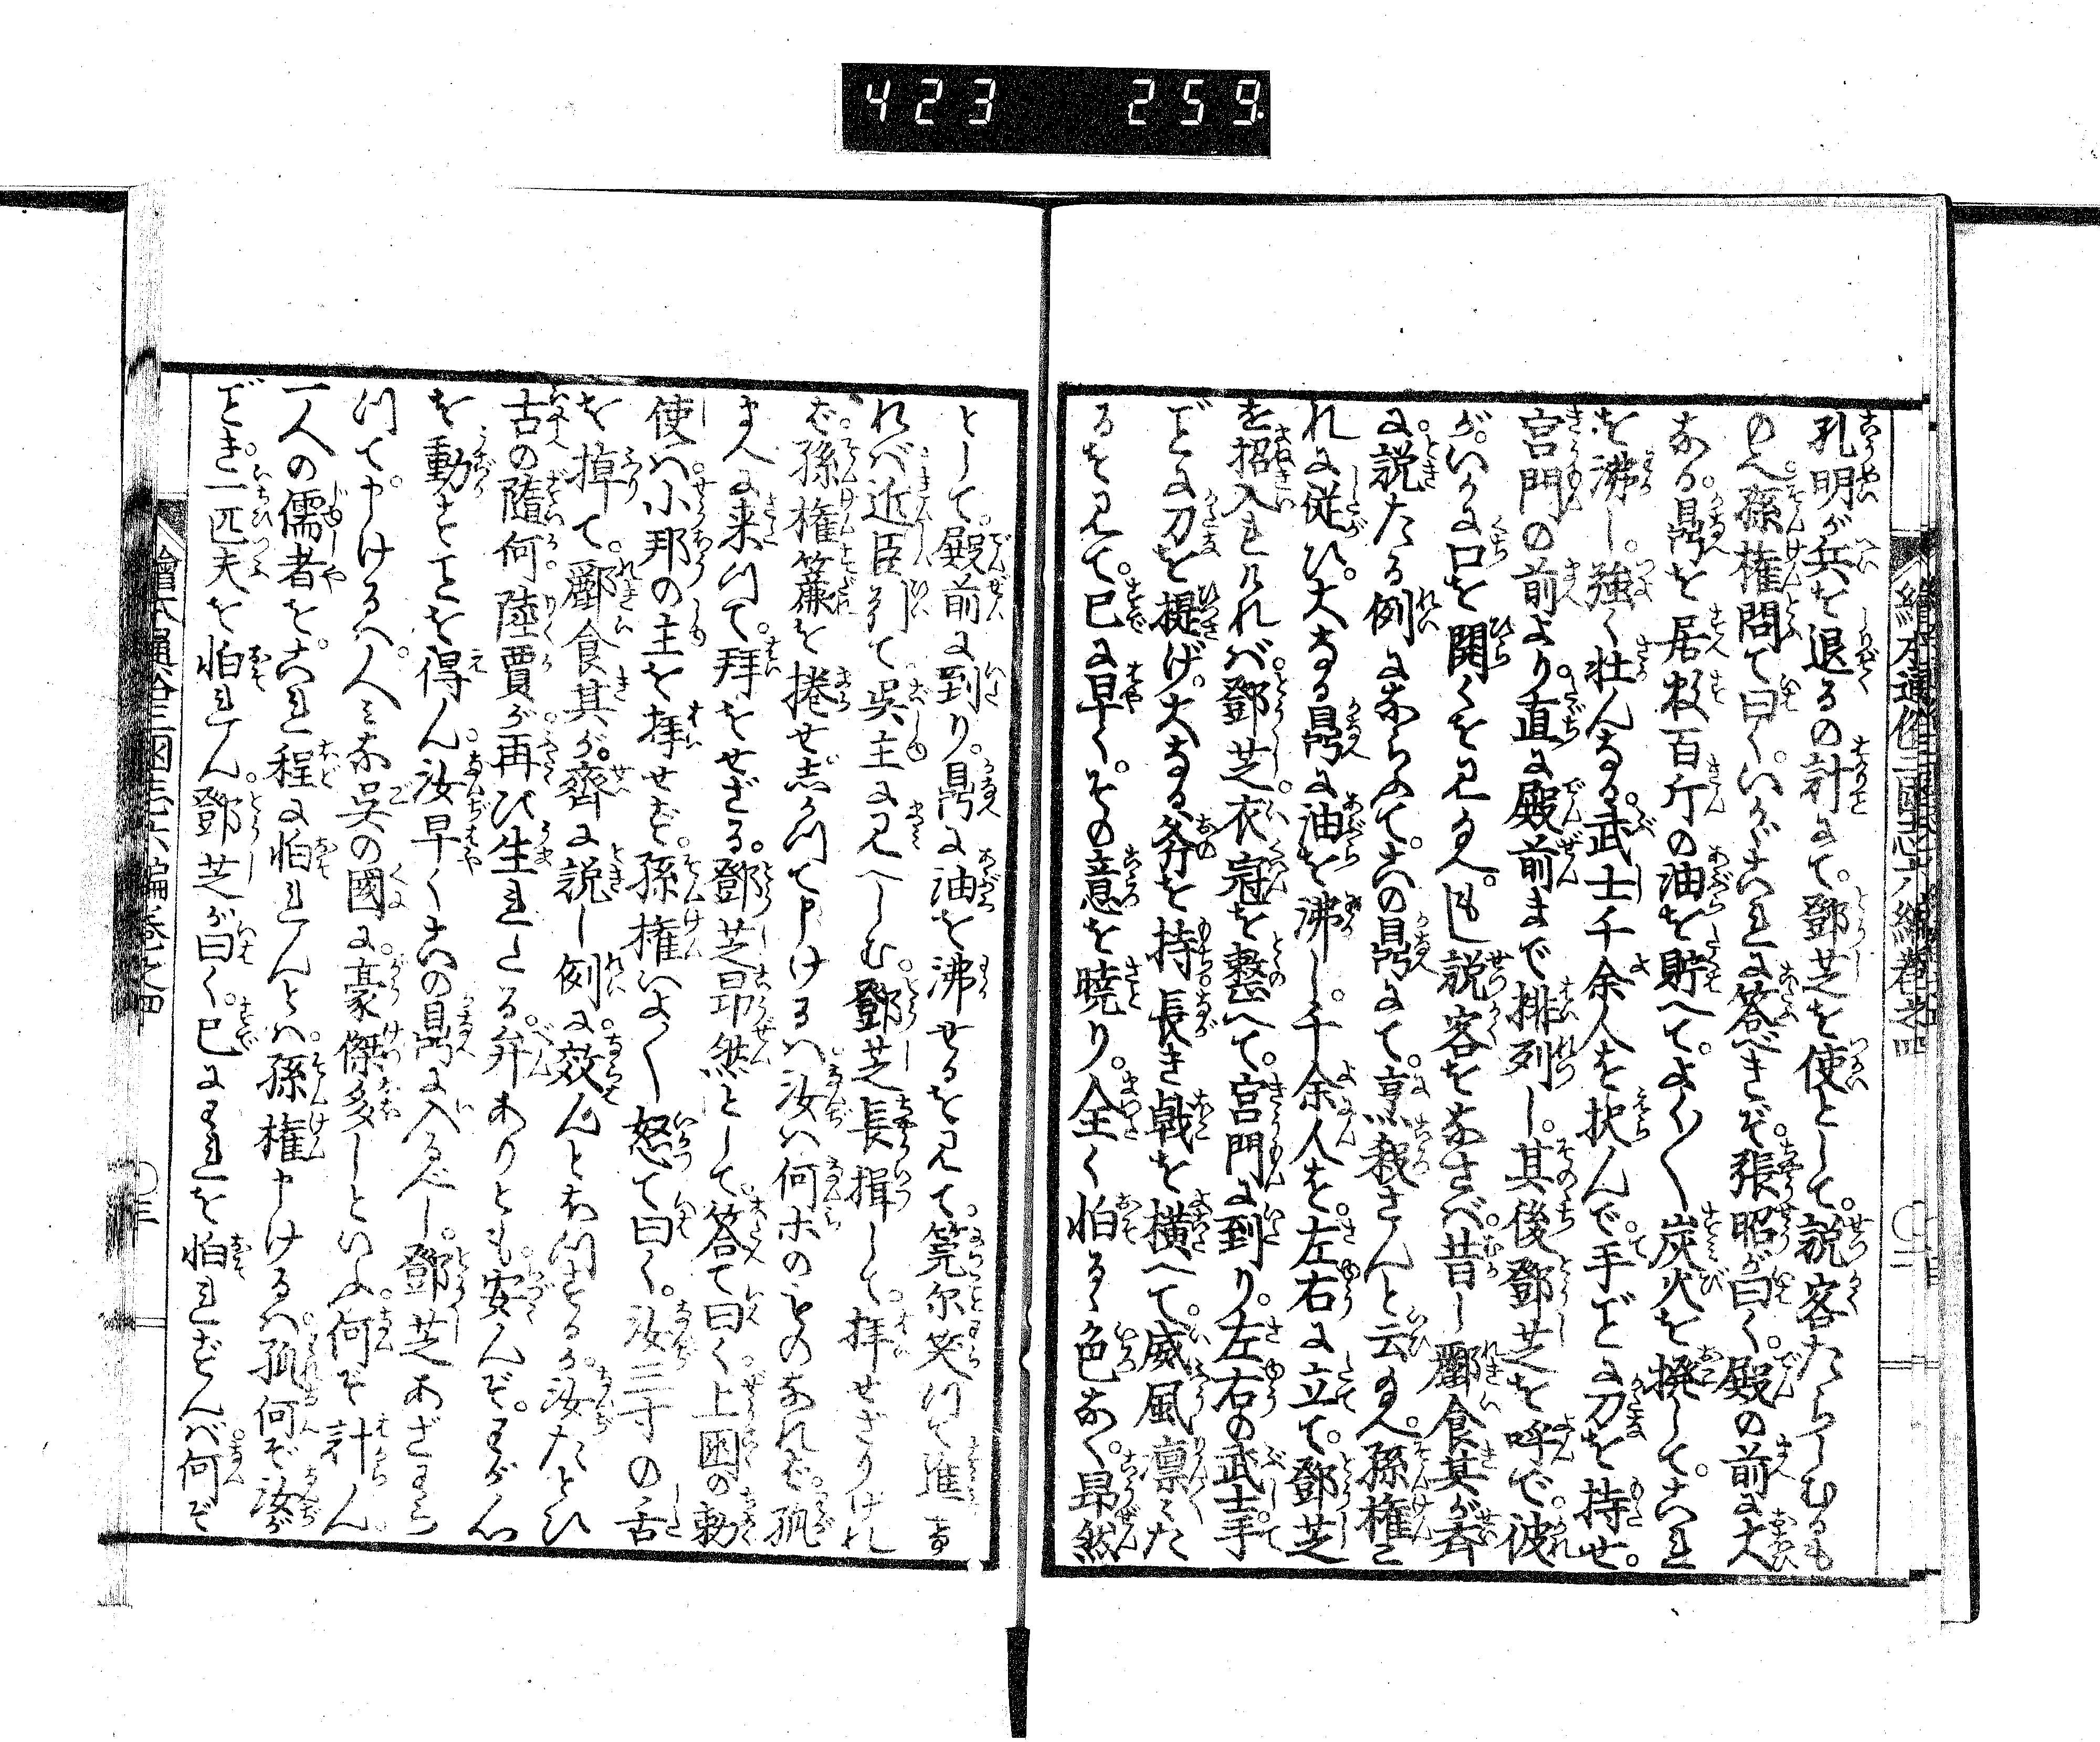 423 259
繪本通俗三國志六編巻之四
〇二
孔明が兵を退るの計にて。鄧芝を使として。説客たらしむるも
のへ。孫権問て曰く。いかゞこれに答べきぞ。張昭が曰く。殿の前に大
なる。鼎を居。数百斤の油を貯へて。よく〱炭火を撥して。これ
を沸し。強く壮んなる。武士千余人を択んで。手ごとに刀を持せ。
宮門の前より。直に殿前まで排列し。其後鄧芝を呼で。彼
が。いまだ口を開くを見る。もし説客をなさば。昔し酈食其が斉
に。説たる例にならふて。この鼎にて。烹殺さんと云へ。孫権こ
れに従ひ。大なる鼎に油を沸し。千余人を。左右に立て。鄧芝
を招入ければ。鄧芝。衣冠を整へて。宮門に到り。左右の武士手
ごとに刀を提げ。大なる斧を持。長き戟を横へて。威風凛々た
るを見て。已に早く。その意を暁り。全く怕るゝ色なく。昂然
として。殿前に到り。鼎に油を沸せるを見て。莞尓笑つて進
れバ近臣引て呉主に見へしむ。鄧芝長揖して。拝せざりけれ
ば。孫権簾を捲せ。しかつて申けるハ。汝ハ何ホのものなれバ。孤
まへに来つて。拝をせざる。鄧芝昂然として。答て曰く。上国の勅
使ハ。小邦の主を拝せず。孫権いよ〱怒て曰く。汝三寸の舌
を掉て。酈食其が。齊に説し例に。效んとおもつをるか。汝たとひ
古の隨何。陸賈が。再び生れたる。弁ありとも。安んぞ。わが心
を動すことを得ん。汝早くこの鼎に入るべし。鄧芝あざわら
つて。申けるハ。人みな呉の國に。豪傑多しといふ。何ぞ計ん。
一人の儒者を。これ程に怕れんとハ。孫権申けるハ。孤何ぞ汝が
ごとき。一匹夫を怕れん。鄧芝が曰く。已にわれを怕れずんば。何ぞ
繪本通俗三國志六編巻之四
〇三